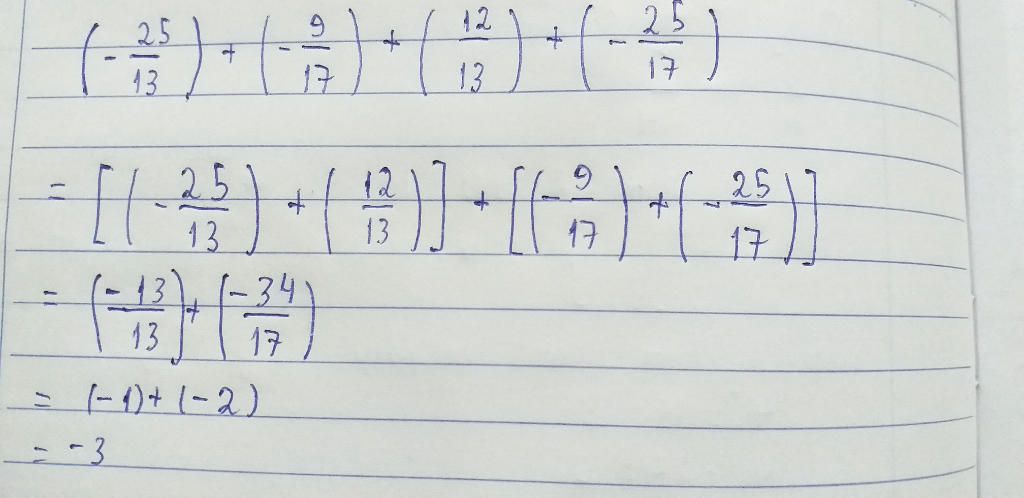 (-25/13) + (-9/17) + (12/13) + (-25/17)
= [(-25/13) + (12/13)] + [(-9/17) + (-25/17)]
= (-13/13) + (-34/17)
= (-1) + (-2)
= -3